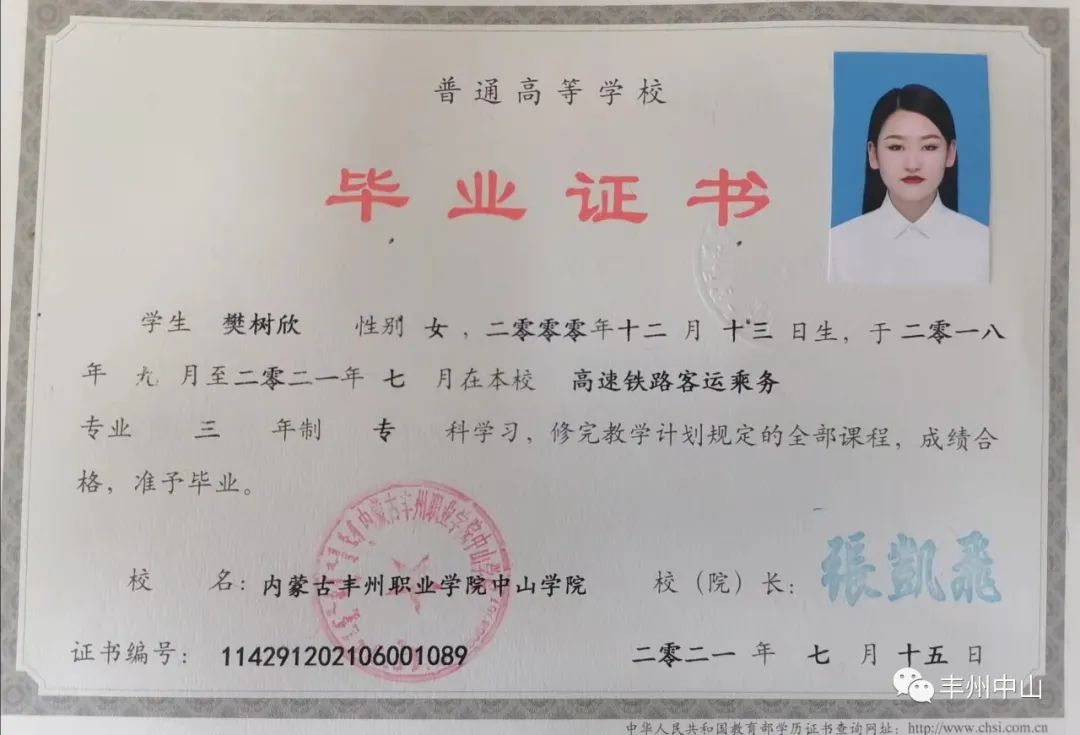 普通高等学校
毕业证书
学生 樊树欣 性别 女，二零零零年十二月十三日生，于二零一八
年九月至二零二一年七月在本校 高速铁路客运乘务
专业 三 年制 专 科学习，修完教学计划规定的全部课程，成绩合
格，准予毕业。
内蒙古丰州职业学院中山学院
校 名：内蒙古丰州职业学院中山学院 校（院）长：張凱飛
证书编号：114291202106001089 二零二一年七月十五日
丰州中山
中华人民共和国教育部学历证书查询网址：http://www.chsi.com.cn